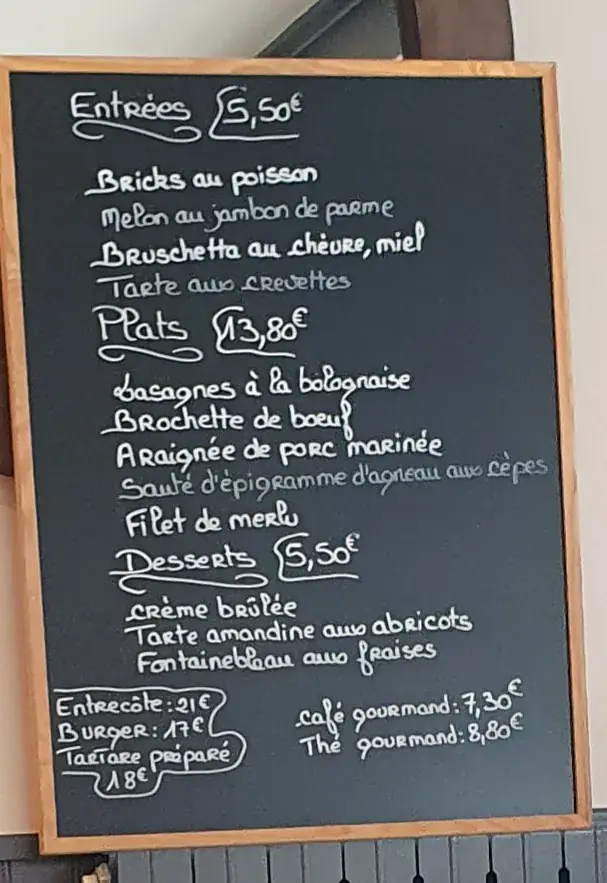 Entrées 5,50€
Bricks au poisson
Melon au jambon de parme
Bruschetta au chèvre, miel
Tarte aux crevettes
Plats 13,80€
Lasagnes à la bolognaise
Brochette de boeuf
Araignée de porc marinée
Sauté d'épigramme d'agneau aux cèpes
Filet de merlu
Desserts 5,50€
crème brûlée
Tarte amandine aux abricots
Fontainebleau aux fraises
Entrecôte : 21€
Burger : 17€
Tartare préparé
18€
café gourmand : 7,30€
Thé gourmand : 8,80€